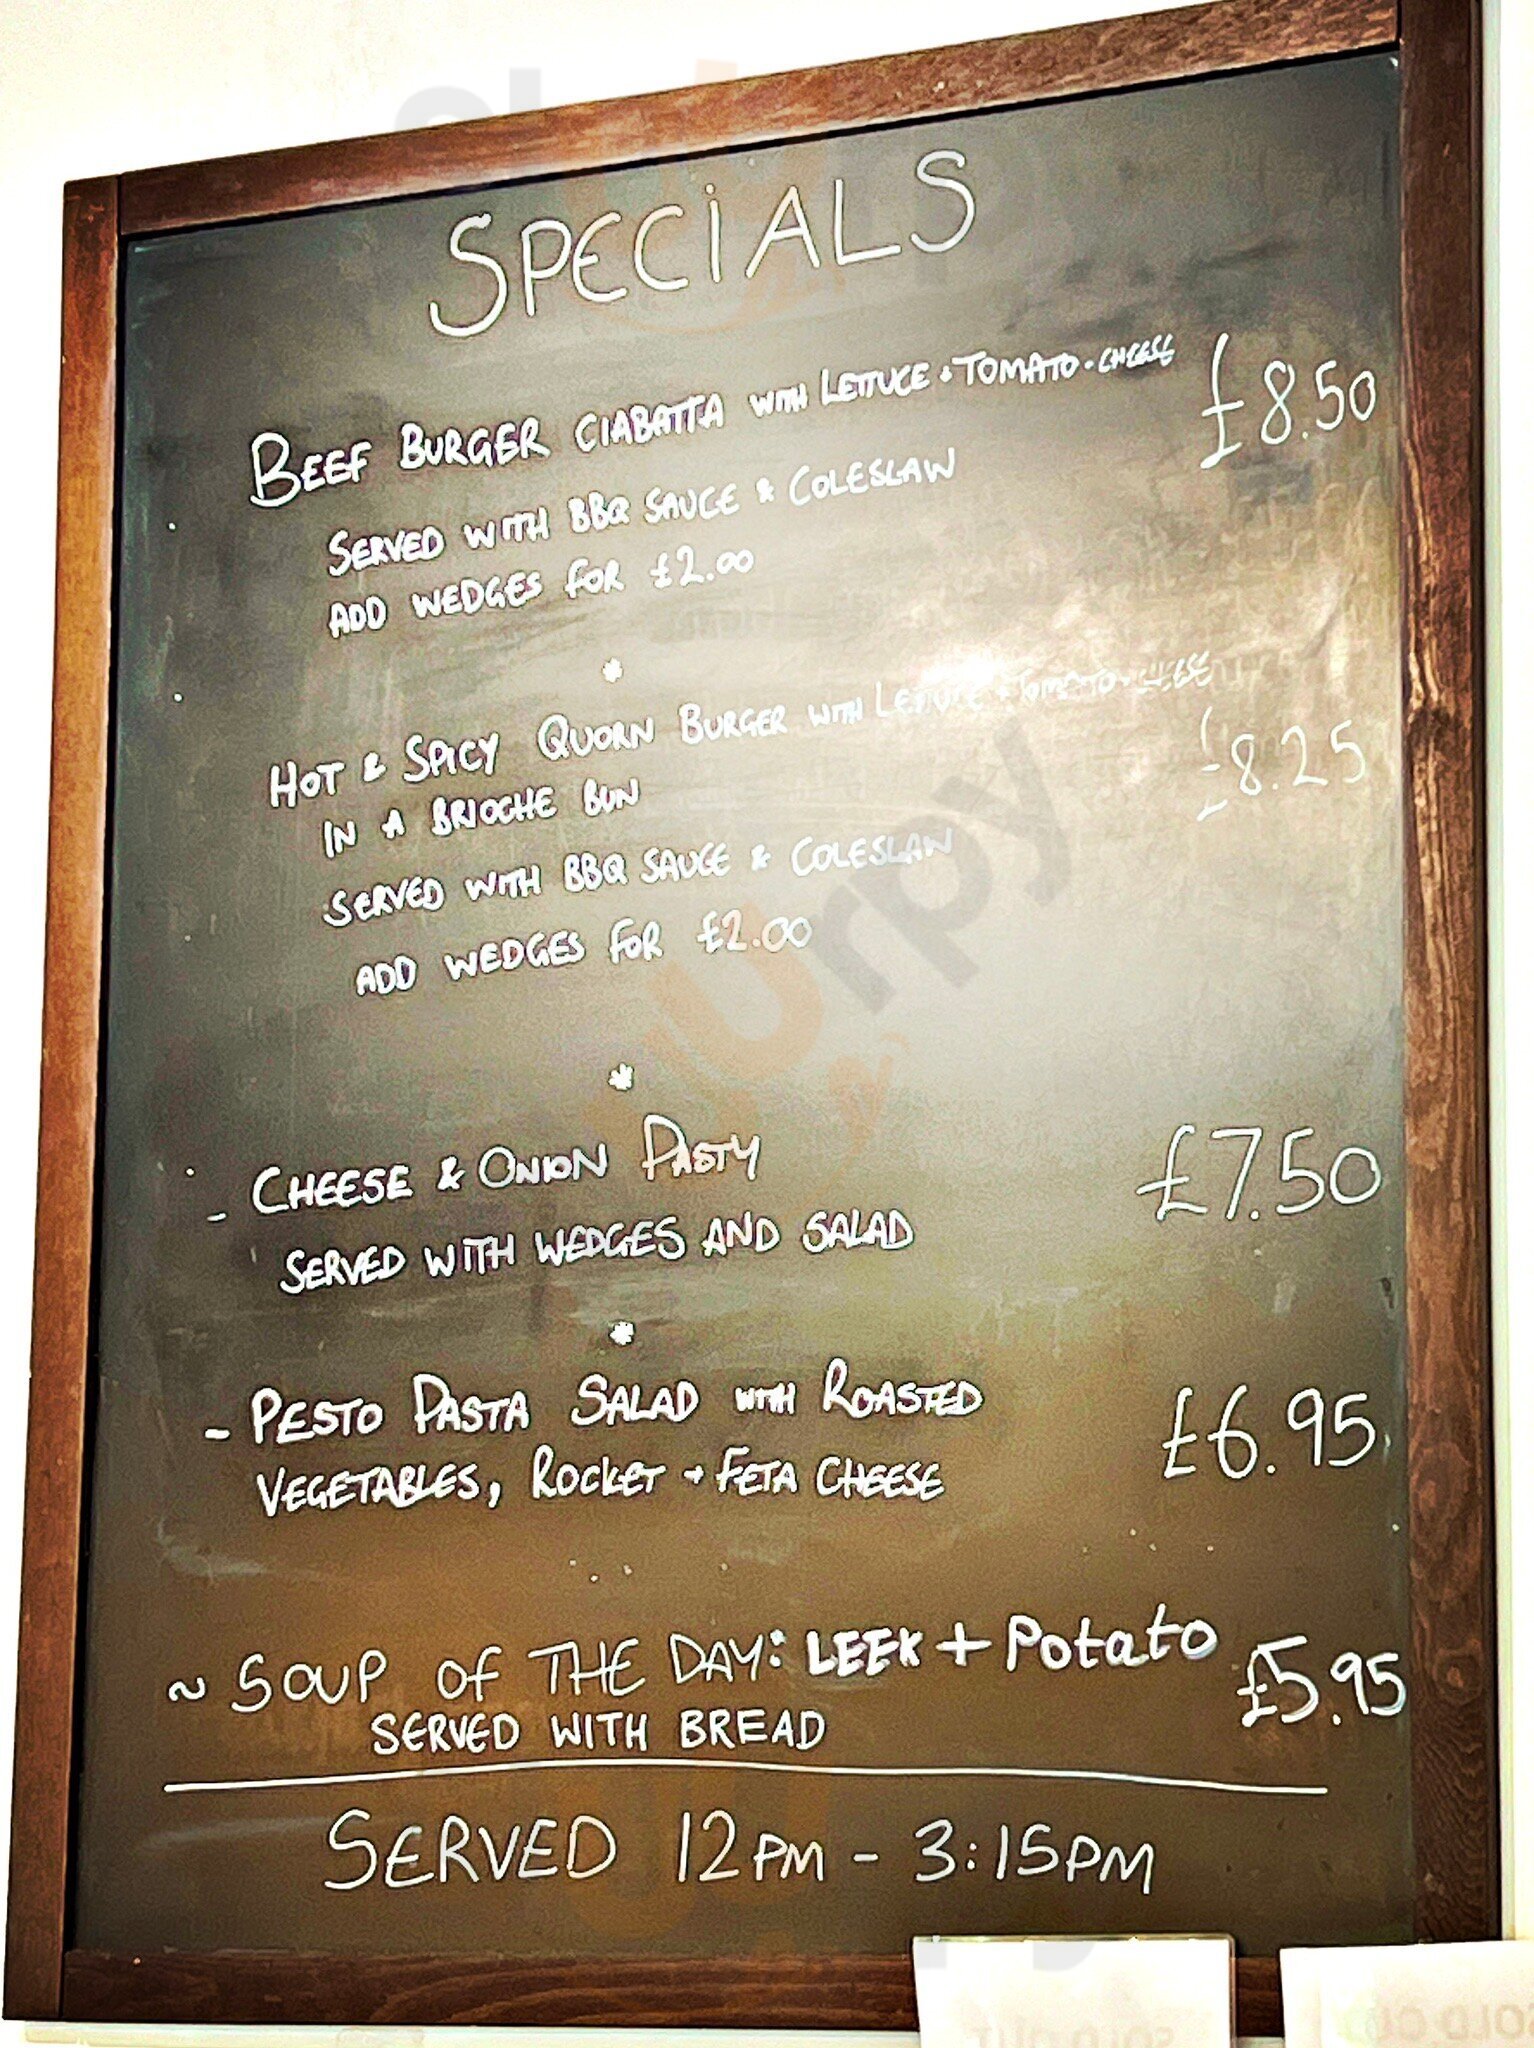 SPECIALS
BEEF BURGER CIABATTA WITH LETTUCE + TOMATO + CHEESE £8.50
SERVED WITH BBQ SAUCE & COLESLAW
ADD WEDGES FOR £2.00
*
HOT & SPICY QUORN BURGER WITH LETTUCE + TOMATO + CHEESE £8.25
IN A BRIOCHE BUN
SERVED WITH BBQ SAUCE & COLESLAW
ADD WEDGES FOR £2.00
*
- CHEESE & ONION PASTY £7.50
SERVED WITH WEDGES AND SALAD
*
- PESTO PASTA SALAD WITH ROASTED £6.95
VEGETABLES, ROCKET + FETA CHEESE
~ SOUP OF THE DAY: LEEK + Potato £5.95
SERVED WITH BREAD
SERVED 12PM - 3:15PM
SOLD OUT
SOLD OU